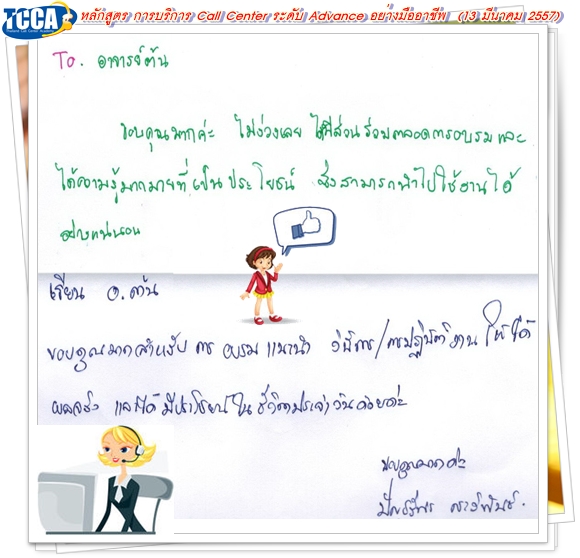 TCCA
Thailand Call Center Academy
หลักสูตร การบริการ Call Center ระดับ Advance อย่างมืออาชีพ (13 มีนาคม 2557)
To. อาจารย์ต้น
ขอบคุณมากค่ะ ไม่ง่วงเลย ได้มีส่วนร่วมตลอดการอบรมและ
ได้ความรู้มากมายที่เป็นประโยชน์ ซึ่งสามารถนำไปใช้งานได้
อย่างแน่นอน
เรียน อ.ต้น
ขอบคุณมากสำหรับการอบรมแนะนำ วิธีการ/การปฏิบัติงาน ให้ได้
ผลจริง และได้มีประโยชน์ในชีวิตประจำวันด้วยค่ะ
ขอบคุณมากค่ะ